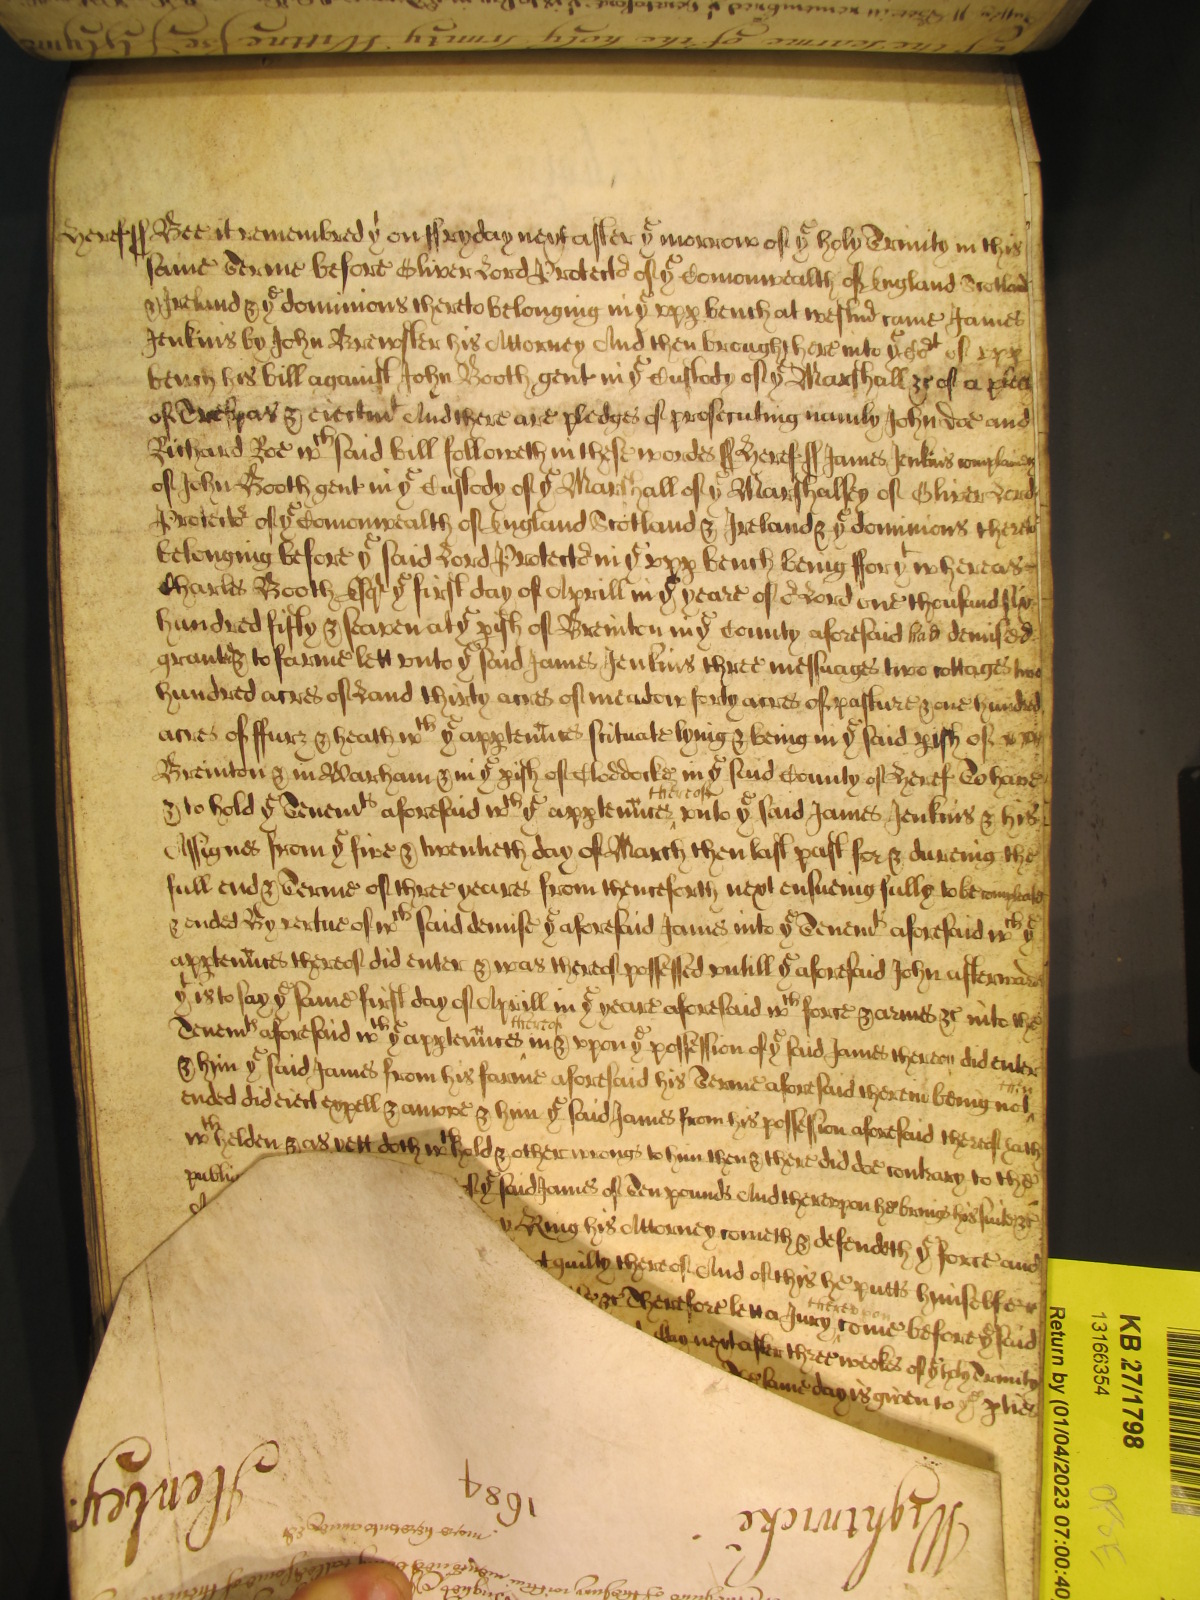 Heref ss Bee it remembred yt on ffryday next after ye morrow of ye holy Trinity in this
same Terme before Oliver Lord Protectr of ye Comonwealth of England Scotland
& Ireland & ye dominions thereto belonging in ye upp bench at westmr came James
Jenkins by John Brewster his Attorney And then brought here into ye Cort of upp
bench his bill against John Booth gent in ye Custody of ye Marshall &c of a plea
of Trespas & eiectmt And there are pledges of prosecuting namly John Doe and
Richard Roe wch said bill followeth in these wordes ss Heref ss James Jenkins complaines
of John Booth gent in ye Custody of ye Marshall of ye Marshalsey of Oliver Lord
Protectr of ye Comonwealth of England Scotland & Ireland & ye dominions thereto
belonging before ye said Lord Protectr in ye upp bench being ffor yt whereas
Charles Booth Esqr ye first day of Aprill in ye yeare of or Lord one thousand six
hundred fifty & seaven at ye pish of Breinton in ye County aforesaid had demised
granted & to farme lett unto ye said James Jenkins three messuages two cottages two
hundred acres of Land thirty acres of meadow forty acres of pasture & one hundred
acres of ffurz & heath wth ye apptennces scituate lying & being in ye said pish of
Breinton & in Warham & in ye pish of Cloddocke in ye said County of Heref To have
& to hold ye Tenemts aforesaid wth ye apptennces thereof unto ye said James Jenkins & his
Assignes from ye five & twentieth day of March then last past for & dureing the
full end & Terme of three yeares from thenceforth next ensueing fully to be compleate
& ended By vertue of wch said demise ye aforesaid James into ye Tenemts aforesaid wth ye
apptennces thereof did enter & was thereof possessed untill ye aforesaid John afterwards
yt is to say ye same first day of Aprill in ye yeare aforesaid wth force & armes &c into the
Tenemts aforesaid wth ye apptennces thereof in & upon ye possession of ye said James thereon did enter
& him ye said James from his farme aforesaid his Terme aforesaid therein being not then
ended did eiect expell & amove & him ye said James from his possession aforesaid thereof hath
wthholden & as yett doth wthhold & other wrongs to him then & there did doe contrary to the
public of ye said James of Ten pounds And thereupon he brings his suite &c
Ring his Attorney cometh & defendeth ye force and
guilty thereof And of this he putts himselfe
&c Therefore lett a Jury thereupon come before ye said
day next after three weekes of ye holy Trinity
same day is given to ye pties
Henley:
1684
Wightwicke
KB 27/1798
13166354
Return by (01/04/2023 07:00:40